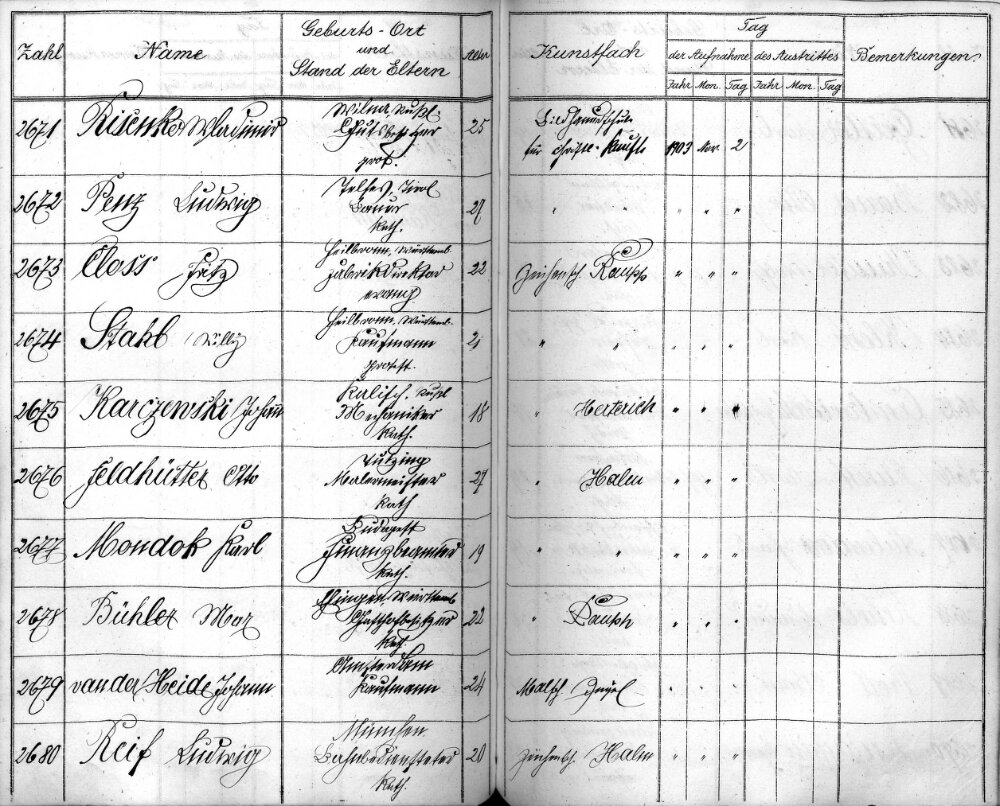 Zahl Name Geburts-Ort und Stand der Eltern Alter Kunstfach Tag der Aufnahme des Austrittes Bemerkungen
Jahr Mon. Tag Jahr Mon. Tag
2671 Risenko Wladimir Wilna, Rußl. Gutsbesitzer prot. 25 Bildhauerschule für christl. Kunst 1903 Nov. 2
2672 Penz Ludwig Telfes, Tirol Bauer kath. 27 " " " " "
2673 Closs Fritz Heilbronn, Württemb. Fabrikdirektor evang 22 Zeichensch. Raupp " " "
2674 Stahl Willy Heilbronn, Württemb. Kaufmann protest. 21 " " " " "
2675 Karczewski Johann Kalisch, Rußl Mechaniker kath. 18 " Herterich " " "
2676 Feldhütter Otto Tutzing Malermeister kath 27 " Halm " " "
2677 Mondok Karl Budapest Finanzbeamter kath. 19 " " " " "
2678 Bühler Max Württemb. kath. 22 " Raupp " " "
2679 van der Heide Johann Amsterdam Kaufmann 24 Malsch. " " "
2680 Reif Ludwig München Bahnbediensteter kath. 20 Zeichensch. Halm " " "